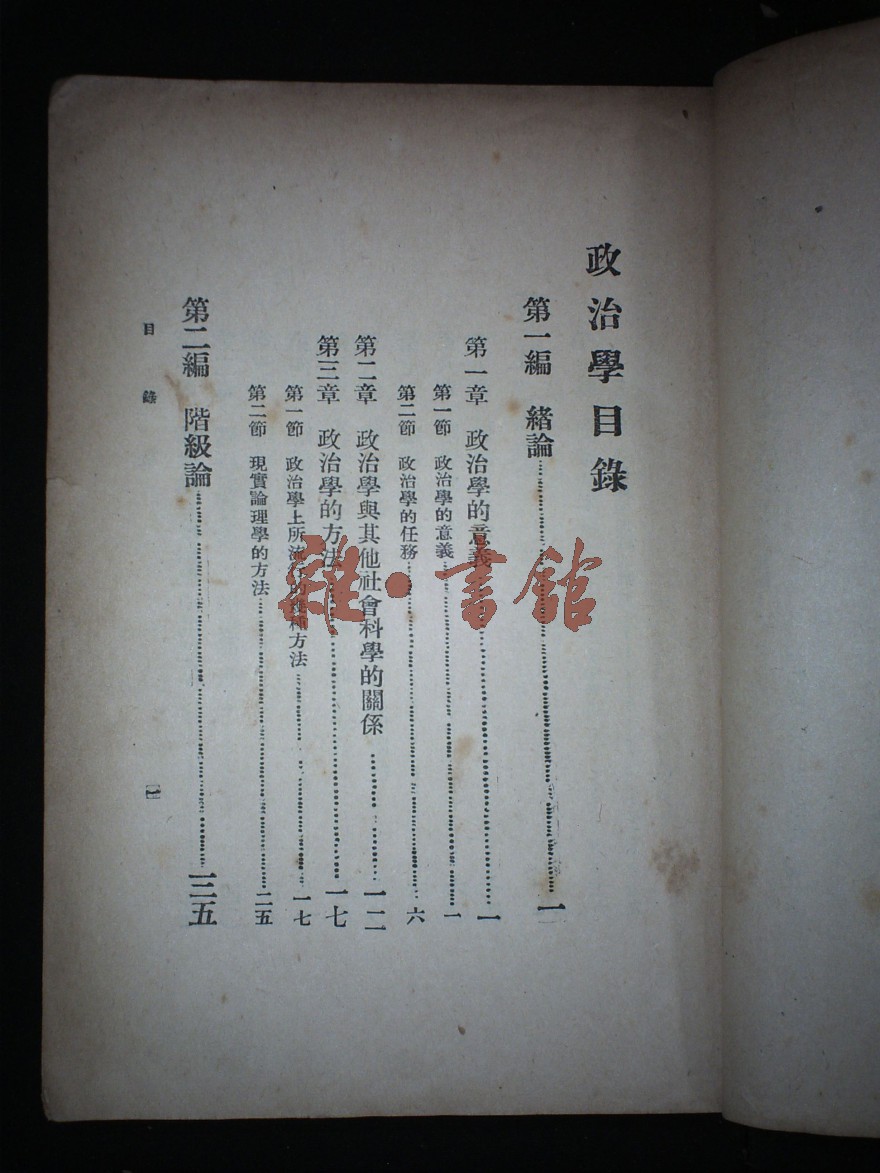 政治學目錄
第一編 緒論……一
第一章 政治學的意義……一
第一節 政治學的意義……一
第二節 政治學的任務……六
第二章 政治學與其他社會科學的關係……一二
第三章 政治學的方法……一七
第一節 政治學上所流行的種種方法……一七
第二節 現實論理學的方法……二五
第二編 階級論……三五
目錄
一
雜·書館